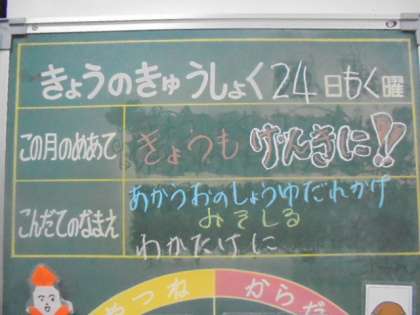 きょうのきゅうしょく 24日もく曜
この月のめあて きょうも げんきに!!
こんだてのなまえ あかうおのしょうゆだれかけ
みそしる
わかたけに
ねつや からだ